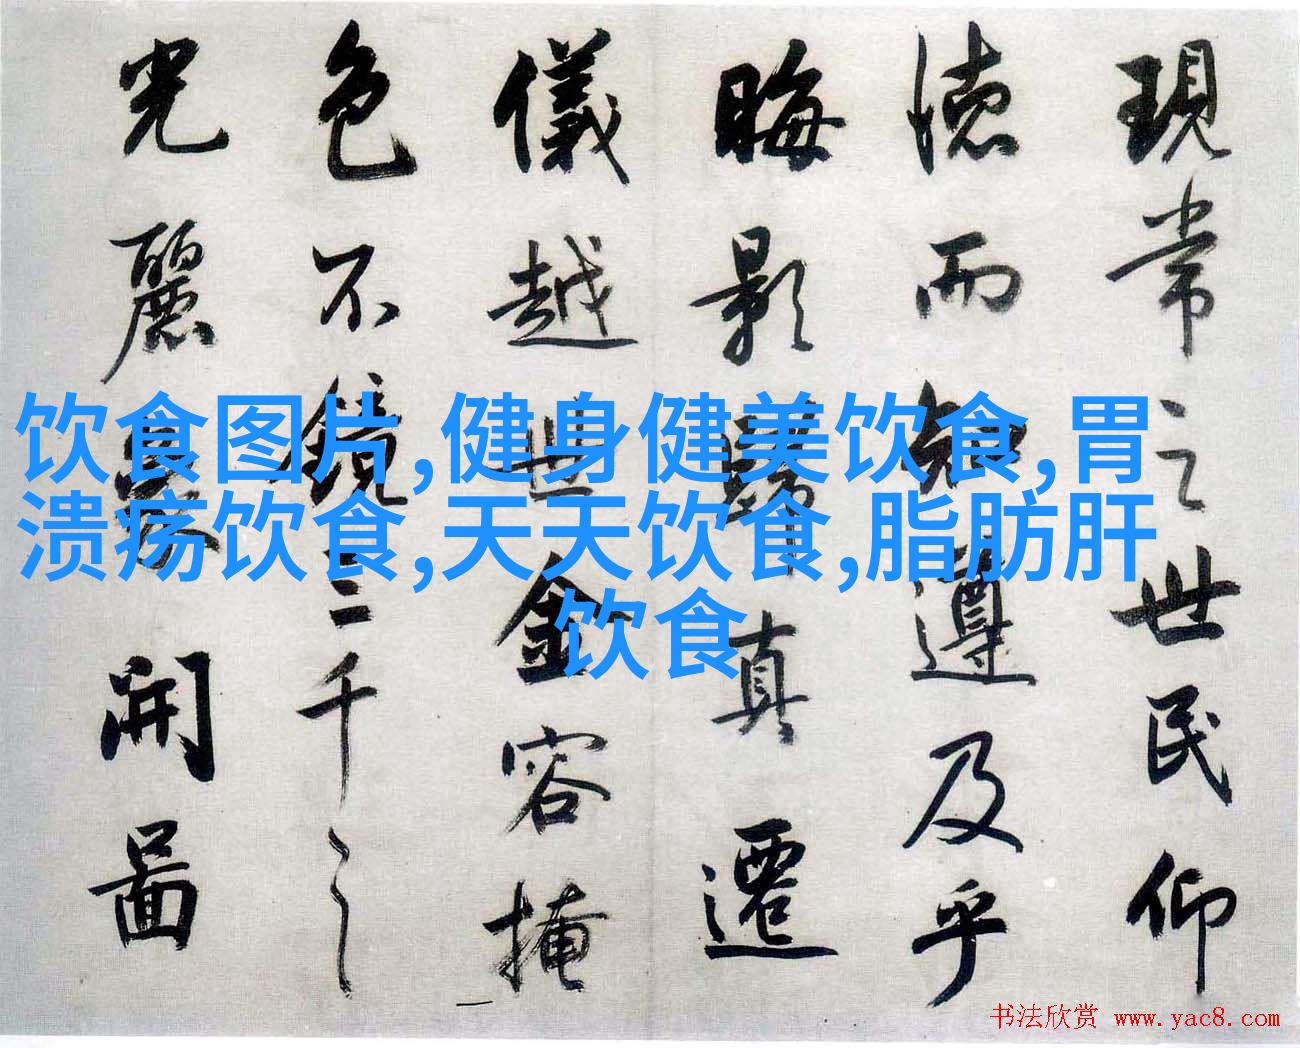 現常之世民仰
德而知遵及乎
晦影歸真遷
儀越世金容掩
色不鏡三千之
光麗象開圖
饮食图片,健身健美饮食,胃
溃疡饮食,天天饮食,脂肪肝
饮食
书法欣赏 www.yac8.com